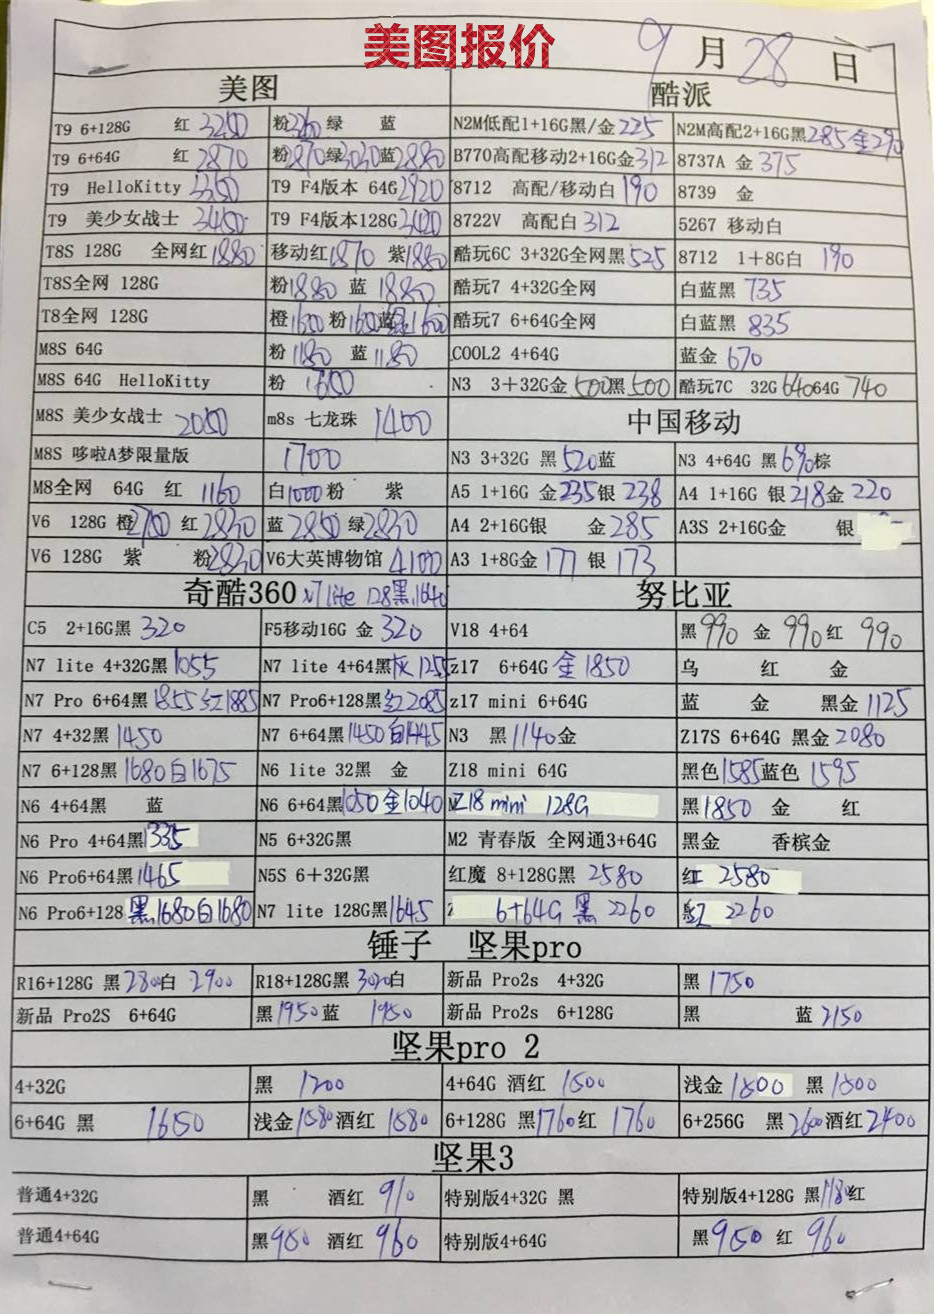 美图报价
9月28日
美图 酷派
T9 6+128G 红 3250 粉 绿 蓝 N2M低配1+16G黑/金225 N2M高配2+16G黑285金290
T9 6+64G 红 2870 粉2870绿3030蓝2880 B770高配移动2+16G金312 8737A 金 375
T9 HelloKitty 3250 T9 F4版本 64G2920 8712 高配/移动白 190 8739 金
T9 美少女战士 3450 T9 F4版本128G3420 8722V 高配白 312 5267 移动白
T8S 128G 全网红1880 移动红1870 紫1880 酷玩6C 3+32G全网黑525 8712 1+8G白 190
T8S全网 128G 粉1880 蓝 1880 酷玩7 4+32G全网 白蓝黑 735
T8全网 128G 橙1600 粉1600蓝绿1600 酷玩7 6+64G全网 白蓝黑 835
M8S 64G 粉 1180 蓝 1180 COOL2 4+64G 蓝金 670
M8S 64G HelloKitty 粉 1600 N3 3+32G金500黑500 酷玩7C 32G640 64G 740
M8S 美少女战士 2050 m8s 七龙珠 1400 中国移动
M8S 哆啦A梦限量版 1700 N3 3+32G 黑520蓝 N3 4+64G 黑690棕
M8全网 64G 红 1160 白1000粉 紫 A5 1+16G 金235银 238 A4 1+16G 银218金 220
V6 128G 橙2700 红2830 蓝2850 绿2830 A4 2+16G银 金285 A3S 2+16G金 银
V6 128G 紫 粉2830 V6大英博物馆 4100 A3 1+8G金 177 银 173
奇酷360 N7 lite 128黑1640 努比亚
C5 2+16G黑 320 F5移动16G 金 320 V18 4+64 黑990 金 990 红 990
N7 lite 4+32G黑1055 N7 lite 4+64黑灰1255 z17 6+64G 金1850 乌 红 金
N7 Pro 6+64黑1855红1885 N7 Pro6+128黑红2085 z17 mini 6+64G 蓝 金 黑金1125
N7 4+32黑1450 N7 6+64黑1450白1445 N3 黑1140金 Z17S 6+64G 黑金2080
N7 6+128黑1680白1675 N6 lite 32黑 金 Z18 mini 64G 黑色1585蓝色 1595
N6 4+64黑 蓝 N6 6+64黑1050金1040 Z18 mini 128G 黑1850 金 红
N6 Pro 4+64黑1335 N5 6+32G黑 M2 青春版 全网通3+64G 黑金 香槟金
N6 Pro6+64黑1465 N5S 6+32G黑 红魔 8+128G黑 2580 红 2580
N6 Pro6+128 黑1680白1680 N7 lite 128G黑1645 6+64G 黑 2260 红 2260
锤子 坚果pro
R16+128G 黑2800白 2900 R18+128G黑3020白 新品 Pro2s 4+32G 黑 1750
新品 Pro2S 6+64G 黑1950蓝 1950 新品 Pro2s 6+128G 黑 蓝 2150
坚果pro 2
4+32G 黑 1200 4+64G 酒红 1500 浅金 1500 黑 1500
6+64G 黑 1650 浅金1580酒红 1580 6+128G 黑1760红 1760 6+256G 黑2600酒红2400
坚果3
普通4+32G 黑 酒红 910 特别版4+32G 黑 特别版4+128G 黑1180红
普通4+64G 黑950 酒红 960 特别版4+64G 黑950 红 960